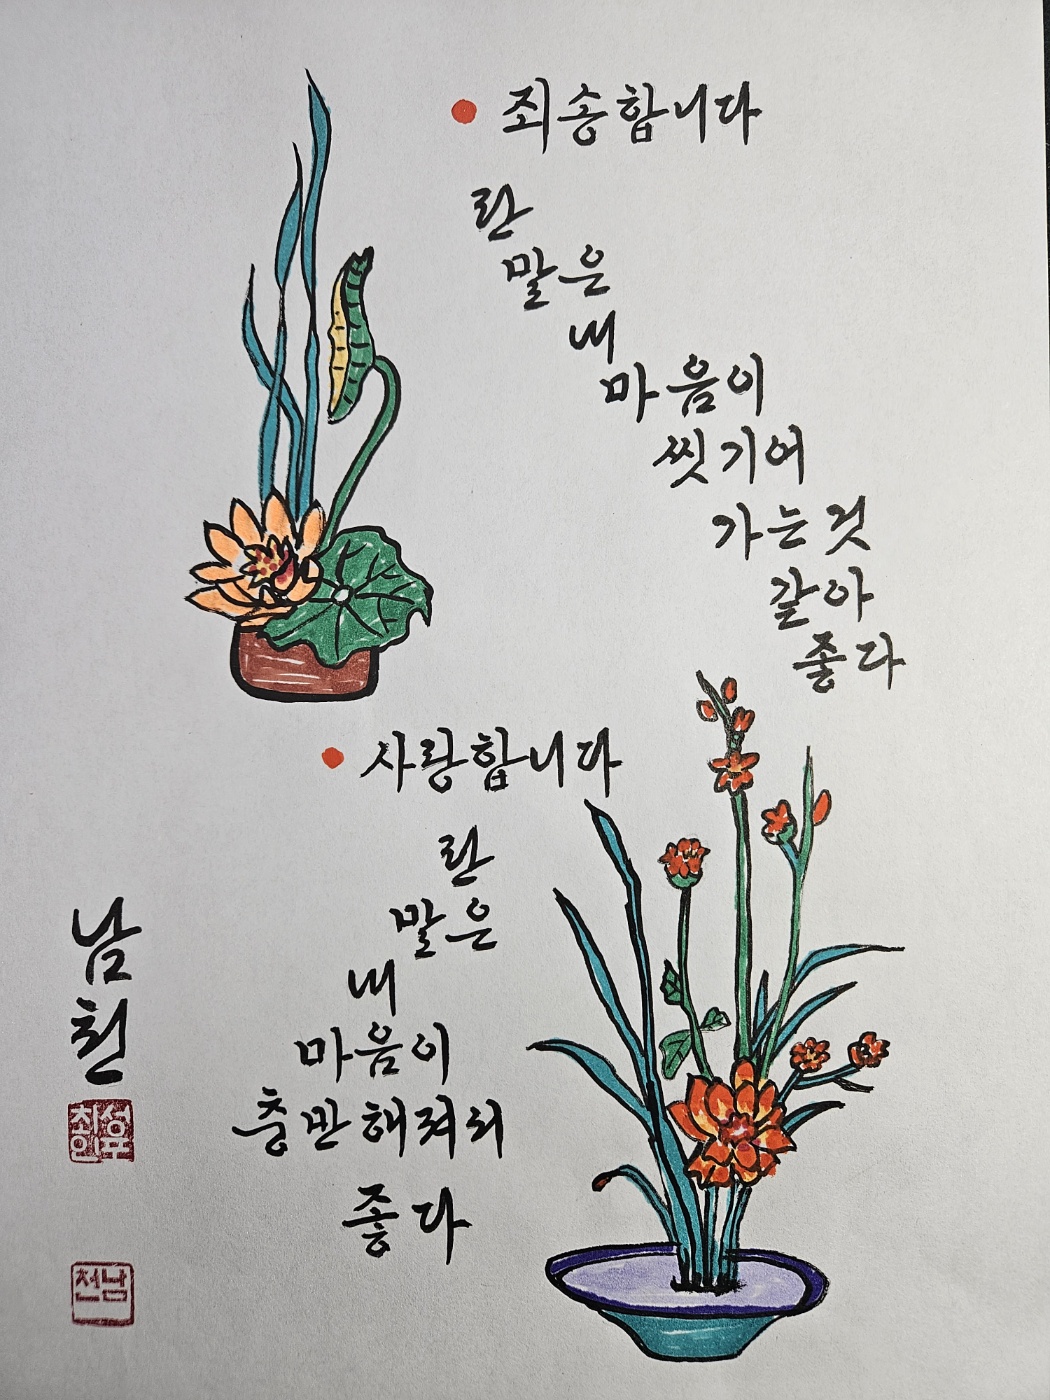 죄송합니다
란
말은
내
마음이
씻기어
가는것
같아
좋다
사랑합니다
란
말은
내
마음이
충만해져서
좋다
남천
천남